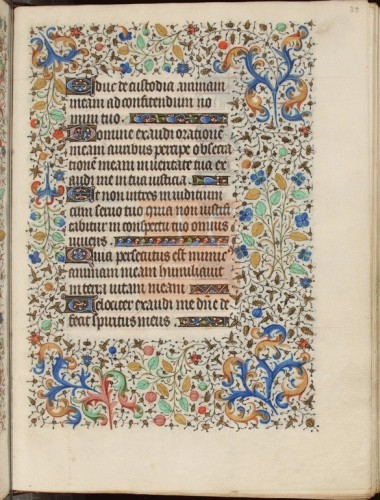 Educ de custodia animam
meam ad confitendum no
mini tuo.
Domine exaudi orationē
meam auribus percipe obsecra
tionē meam in veritate tua ex
audi me in tua iusticia.
Et non intres in iudicium
cum servo tuo quia non iustifi
cabitur in conspectu tuo omnis
vivens.
Quia persecutus est inimic
animam meam humiliavit
in terra vitam meam
Velociter exaudi me dn̄e de
fecit spiritus meus.